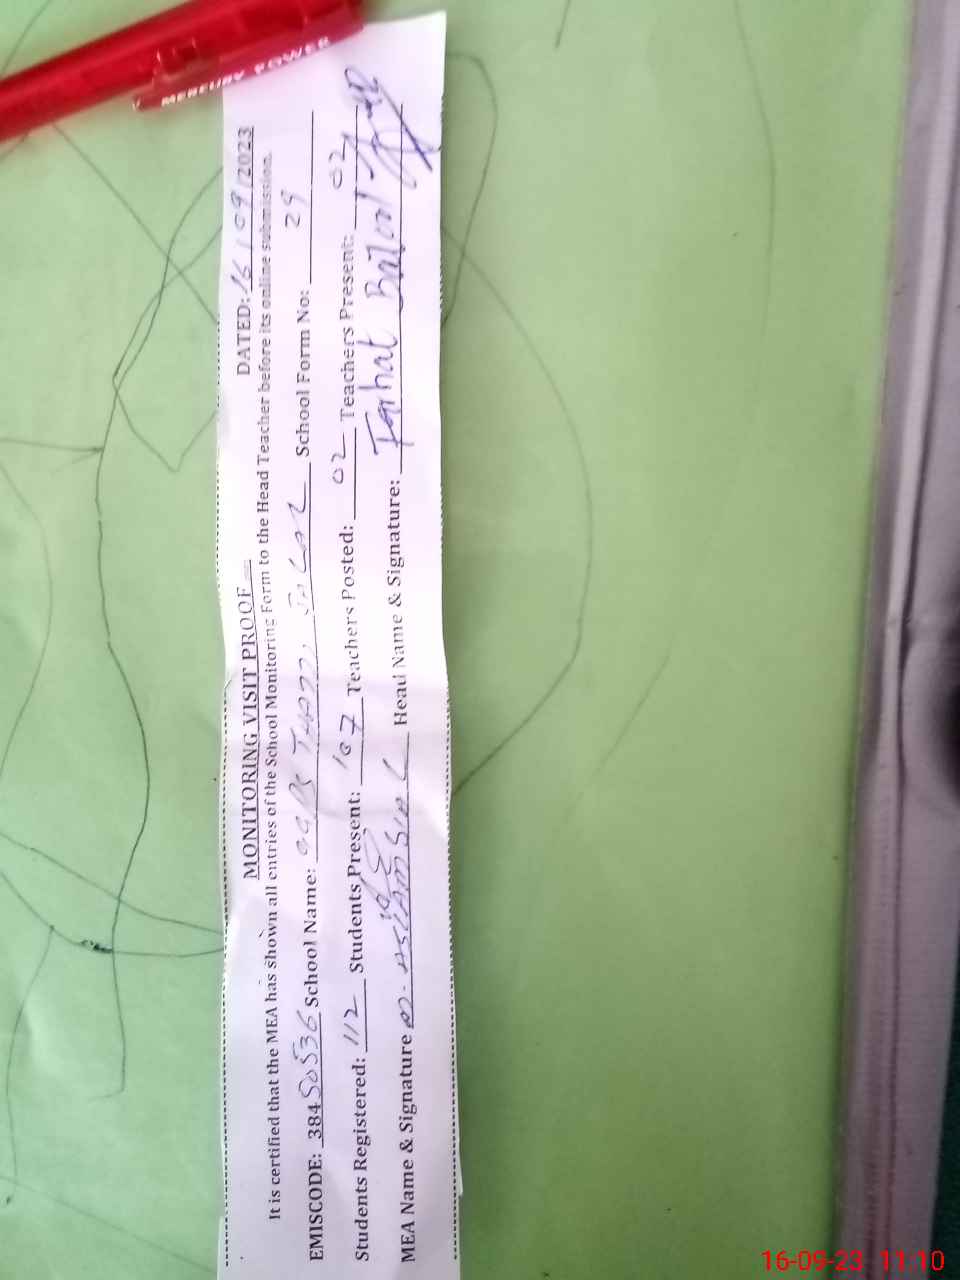 MERCURY POWER
MONITORING VISIT PROOF DATED: 16/09/2023
It is certified that the MEA has shown all entries of the School Monitoring Form to the Head Teacher before its online submission.
EMISCODE: 38450536 School Name: School Form No: 29
Students Registered: 112 Students Present: 107 Teachers Posted: 02 Teachers Present: 02
MEA Name & Signature Head Name & Signature: Farhat Batool
16-09-23 11:10